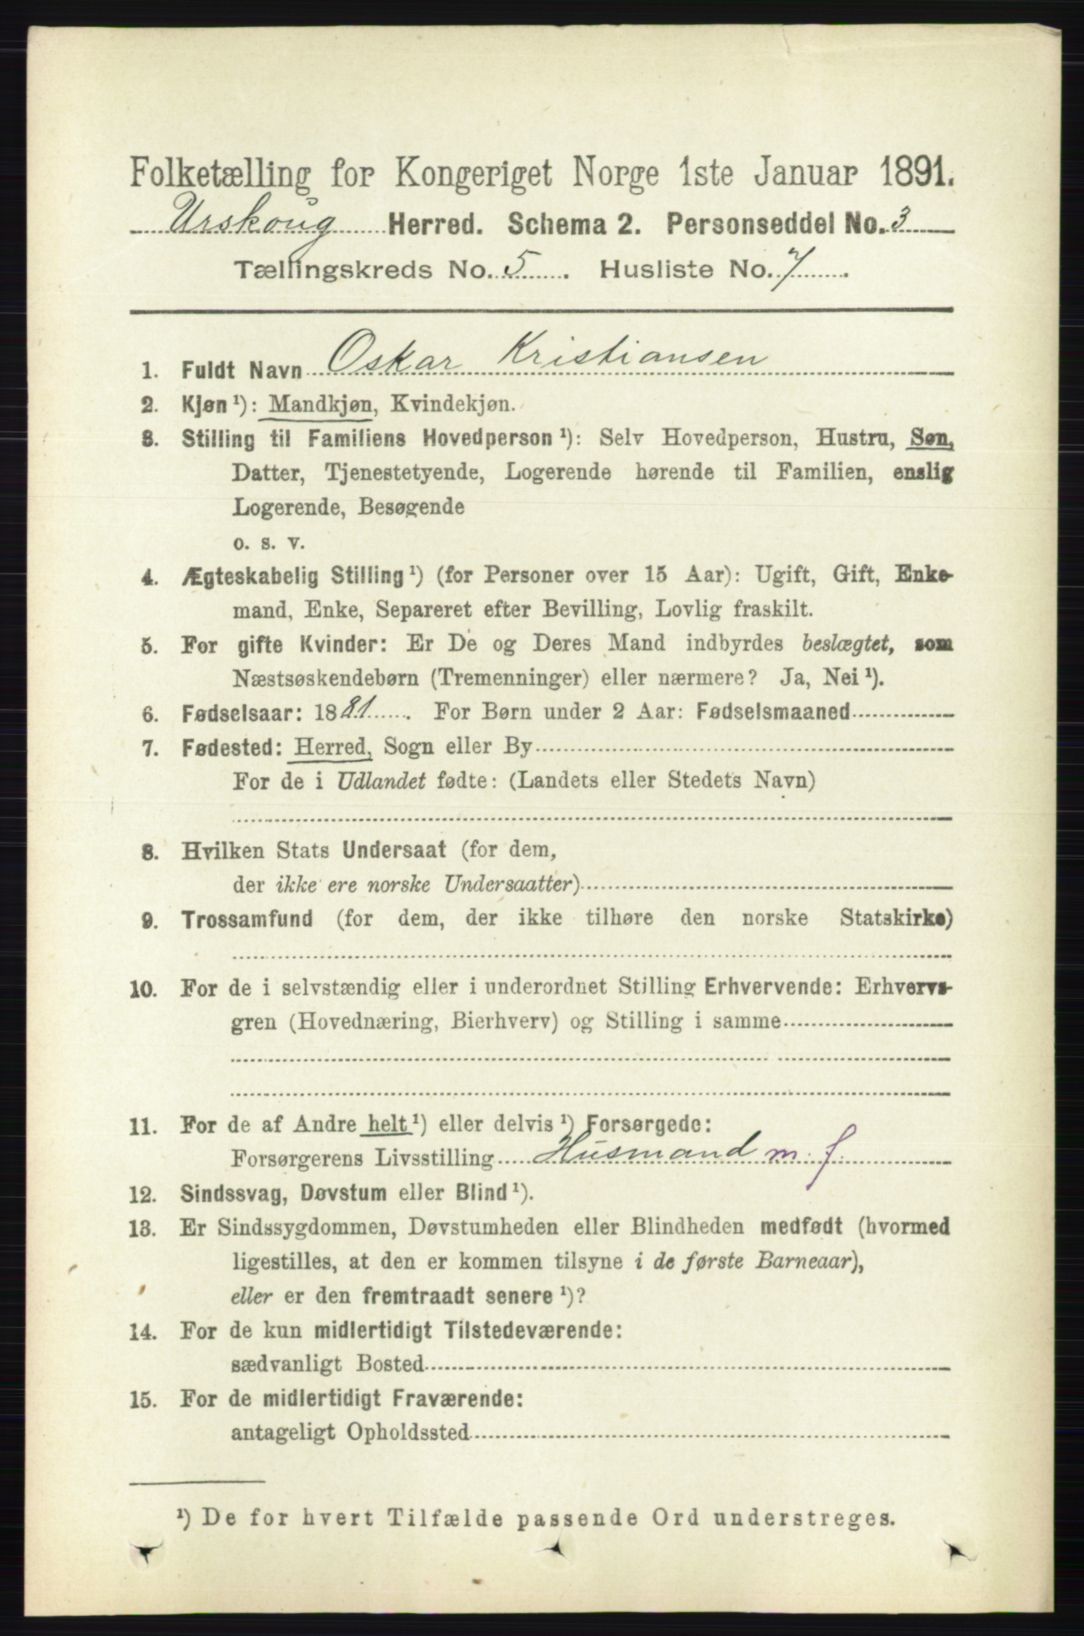 Folketælling for Kongeriget Norge 1ste Januar 1891.
Urskoug Herred. Schema 2. Personseddel No. 3
Tællingskreds No. 5. Husliste No. 7.
1. Fuldt Navn Oskar Kristiansen
2. Kjøn ¹): Mandkjøn, Kvindekjøn.
3. Stilling til Familiens Hovedperson ¹): Selv Hovedperson, Hustru, Søn,
Datter, Tjenestetyende, Logerende hørende til Familien, enslig
Logerende, Besøgende
o. s. v.
4. Ægteskabelig Stilling ¹) (for Personer over 15 Aar): Ugift, Gift, Enke-
mand, Enke, Separeret efter Bevilling, Lovlig fraskilt.
5. For gifte Kvinder: Er De og Deres Mand indbyrdes beslægtet, som
Næstsøskendebørn (Tremenninger) eller nærmere? Ja, Nei ¹).
6. Fødselsaar: 1881. For Børn under 2 Aar: Fødselsmaaned
7. Fødested: Herred, Sogn eller By
For de i Udlandet fødte: (Landets eller Stedets Navn)
8. Hvilken Stats Undersaat (for dem,
der ikke ere norske Undersaatter)
9. Trossamfund (for dem, der ikke tilhøre den norske Statskirke)
10. For de i selvstændig eller i underordnet Stilling Erhvervende: Erhvervs-
gren (Hovednæring, Bierhverv) og Stilling i samme
11. For de af Andre helt ¹) eller delvis ¹) Forsørgede:
Forsørgerens Livsstilling Husmand m. f.
12. Sindssvag, Døvstum eller Blind ¹).
13. Er Sindssygdommen, Døvstumheden eller Blindheden medfødt (hvormed
ligestilles, at den er kommen tilsyne i de første Barneaar),
eller er den fremtraadt senere ¹)?
14. For de kun midlertidigt Tilstedeværende:
sædvanligt Bosted
15. For de midlertidigt Fraværende:
antageligt Opholdssted
¹) De for hvert Tilfælde passende Ord understreges.